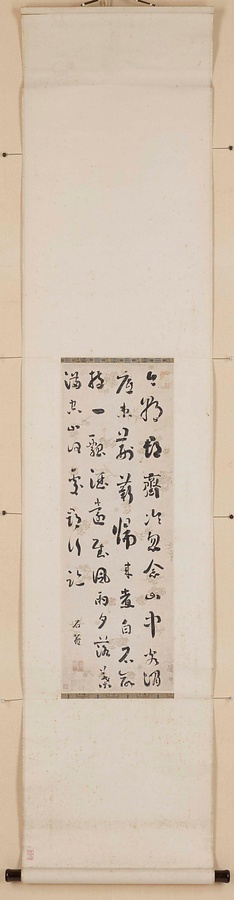 今朝郡齋冷忽念山中客澗
底束荊薪歸來煮白石欲
持一瓢酒遠慰風雨夕落葉
滿空山何處尋行跡
石